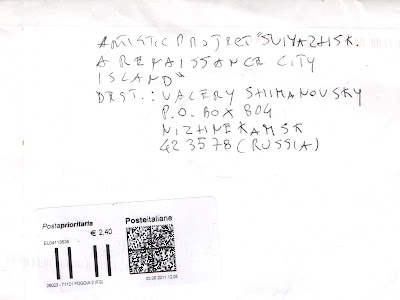 ARTISTIC PROJECT "SVIYAZHSK.
A RENAISSANCE CITY
ISLAND"
DEST.: VALERY SHIMANOVSKY
P.O. BOX 804
NIZHNEKAMSK
423578 (RUSSIA)
Postaprioritaria
Posteitaliane
€ 2,40
03.08.2011 12.05